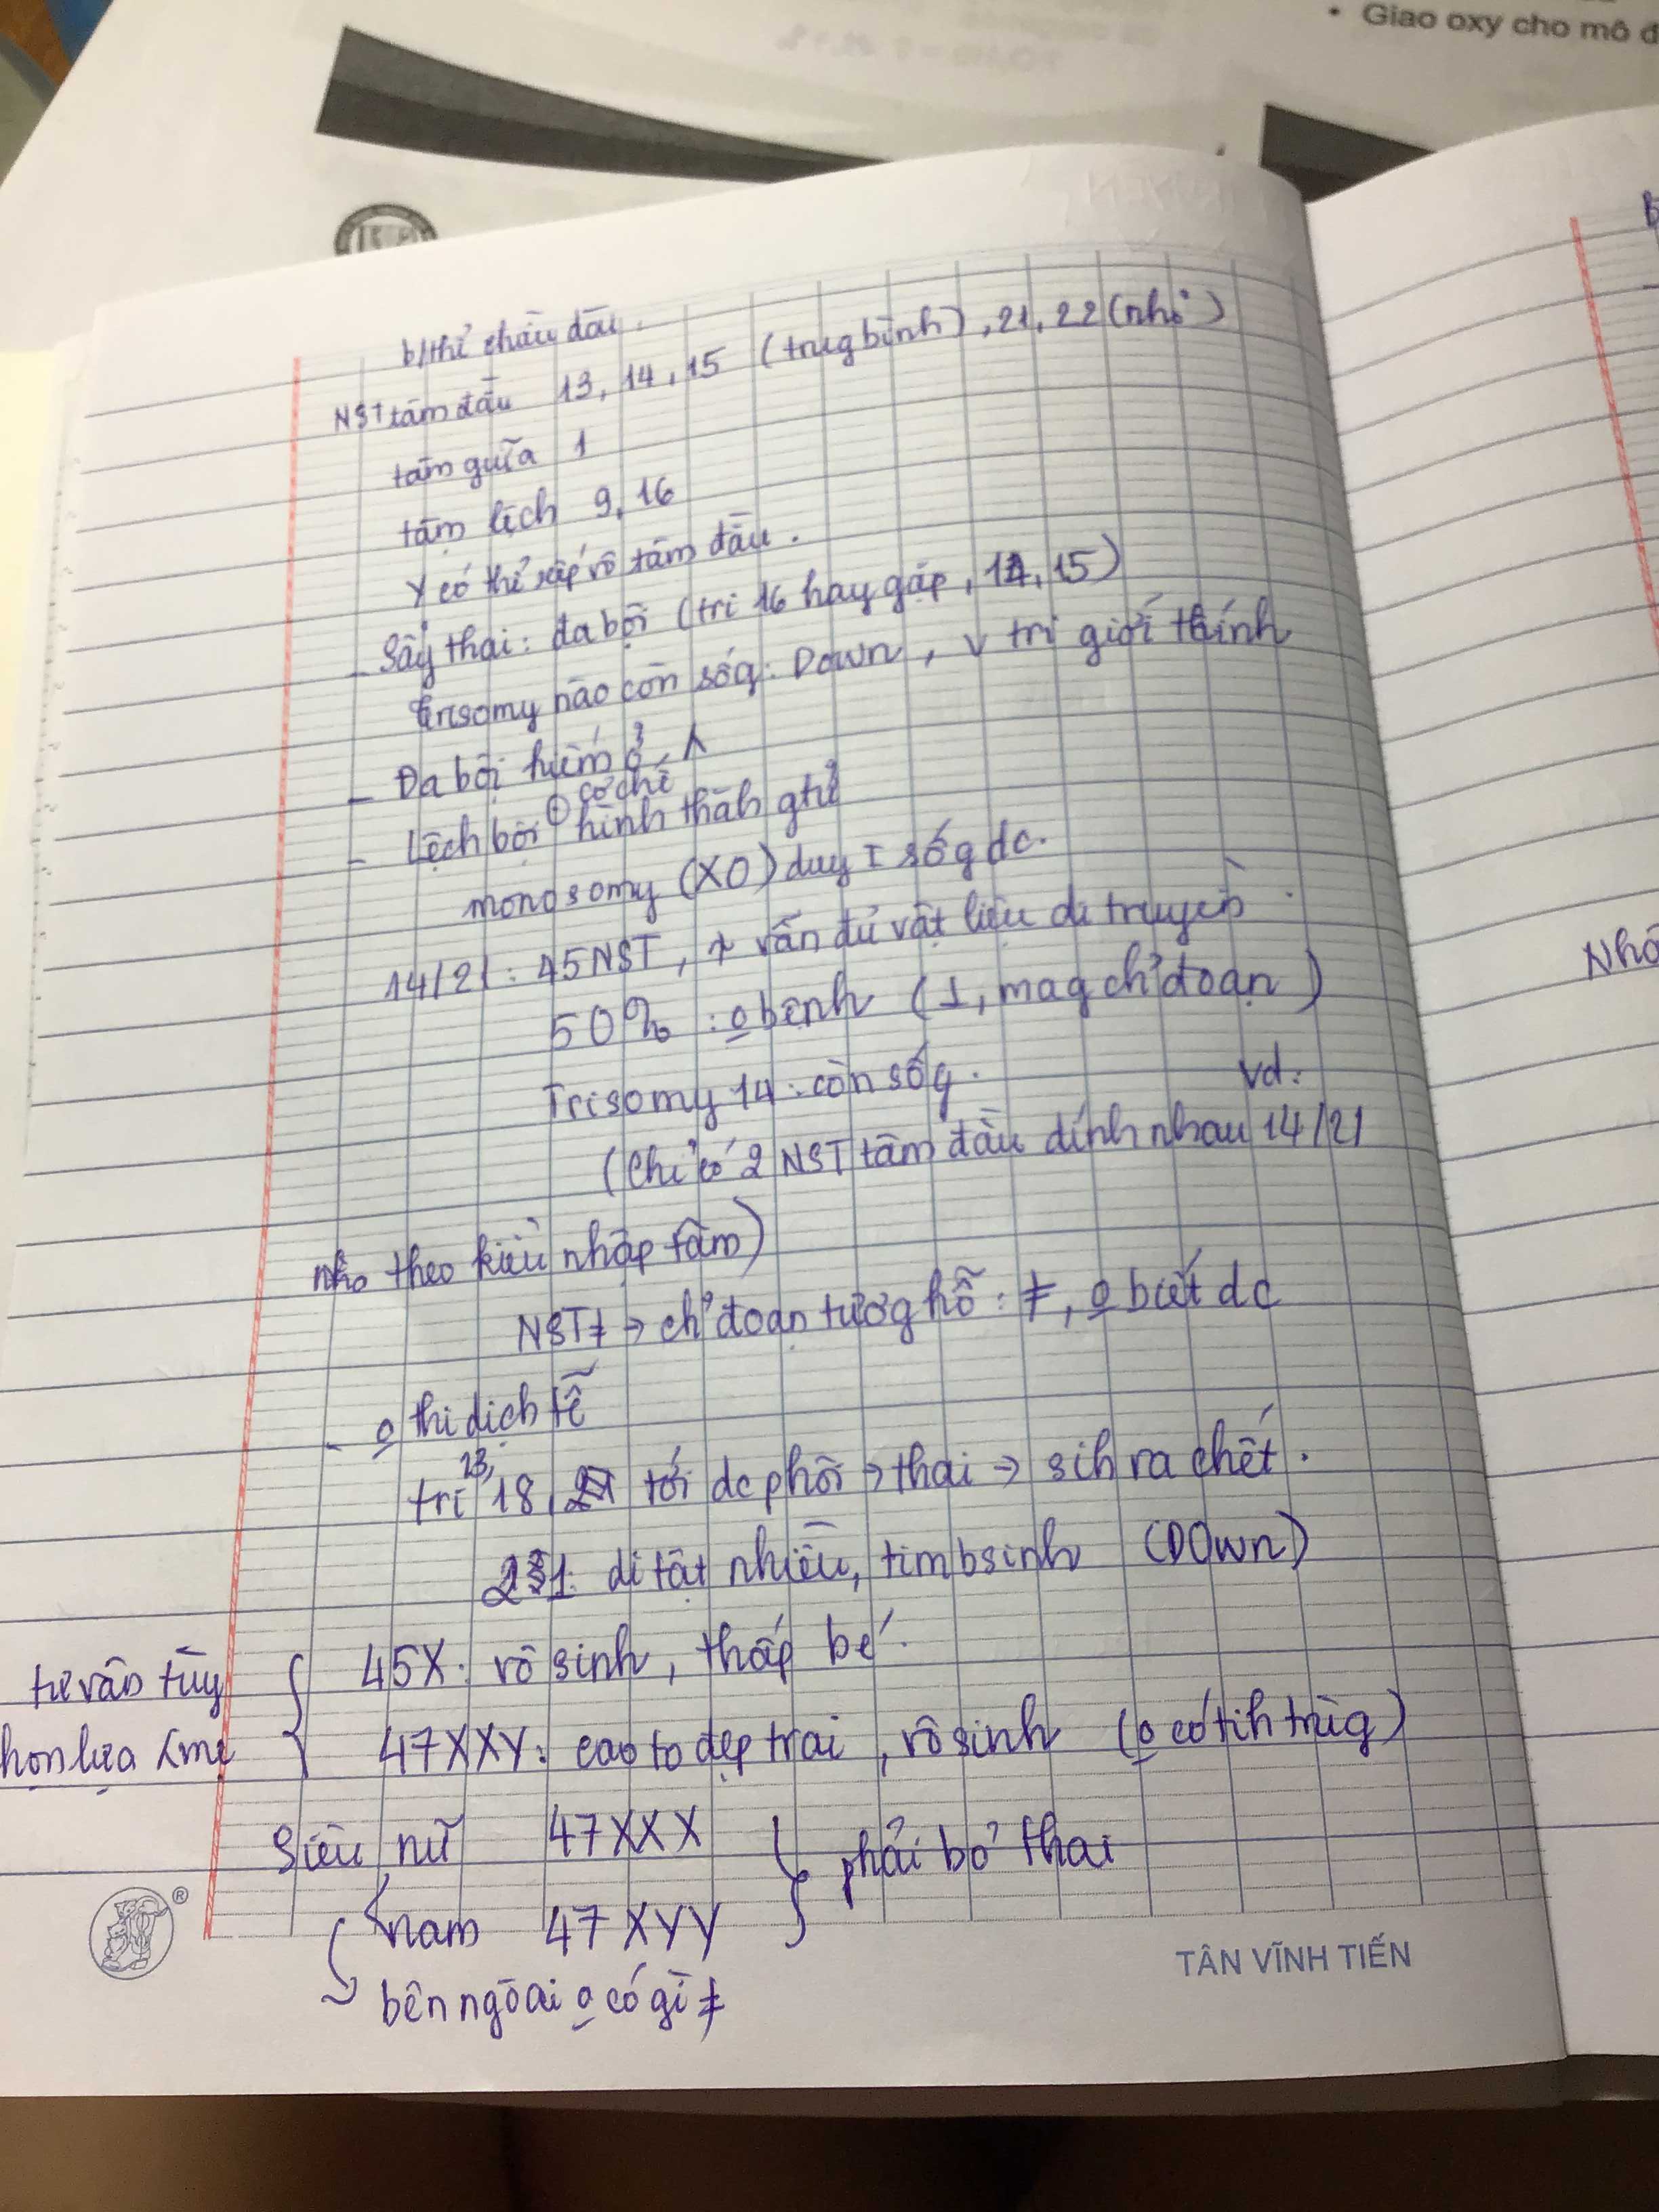 • Giao oxy cho mô d
b/thể chiều dài.
NST tâm đầu 13, 14, 15 (trug bình), 21, 22 (nhỏ)
tâm giữa 1
tâm lệch 9, 16
Y có thể xếp vô tâm đầu.
- Sẩy thai: đa bội (tri 16 hay gặp, 14, 15)
trisomy nào còn sốg: Down, v tri giới tính
- Đa bội hiếm ở
- Lệch bội cơ chế hình thàh gtử
monosomy (XO) duy I sốg dc.
14/21: 45NST, vẫn đủ vật liệu di truyền
50% : o bệnh (1, mag ch' đoạn)
Trisomy 14: còn sốg.
vd:
(Chỉ có 2 NST tâm đầu dính nhau 14/21
nhỏ theo kiểu nhập tâm)
NST≠ → ch' đoạn tươg hỗ: ≠, o biết dc
- o thi dịch tễ
tri 13, 18, tới dc phôi → thai → sih ra chết.
21: dị tật nhiều, tim bsinh (DOwn)
tư vấn tùy
45X: vô sinh, thấp bé.
họn lựa
47XXY: cao to đẹp trai, vô sinh (o có tih trùg)
Siêu nữ 47XXX
phải bỏ thai
nam 47XYY
bên ngoài o có gì ≠
TÂN VĨNH TIẾN
®
Nhó